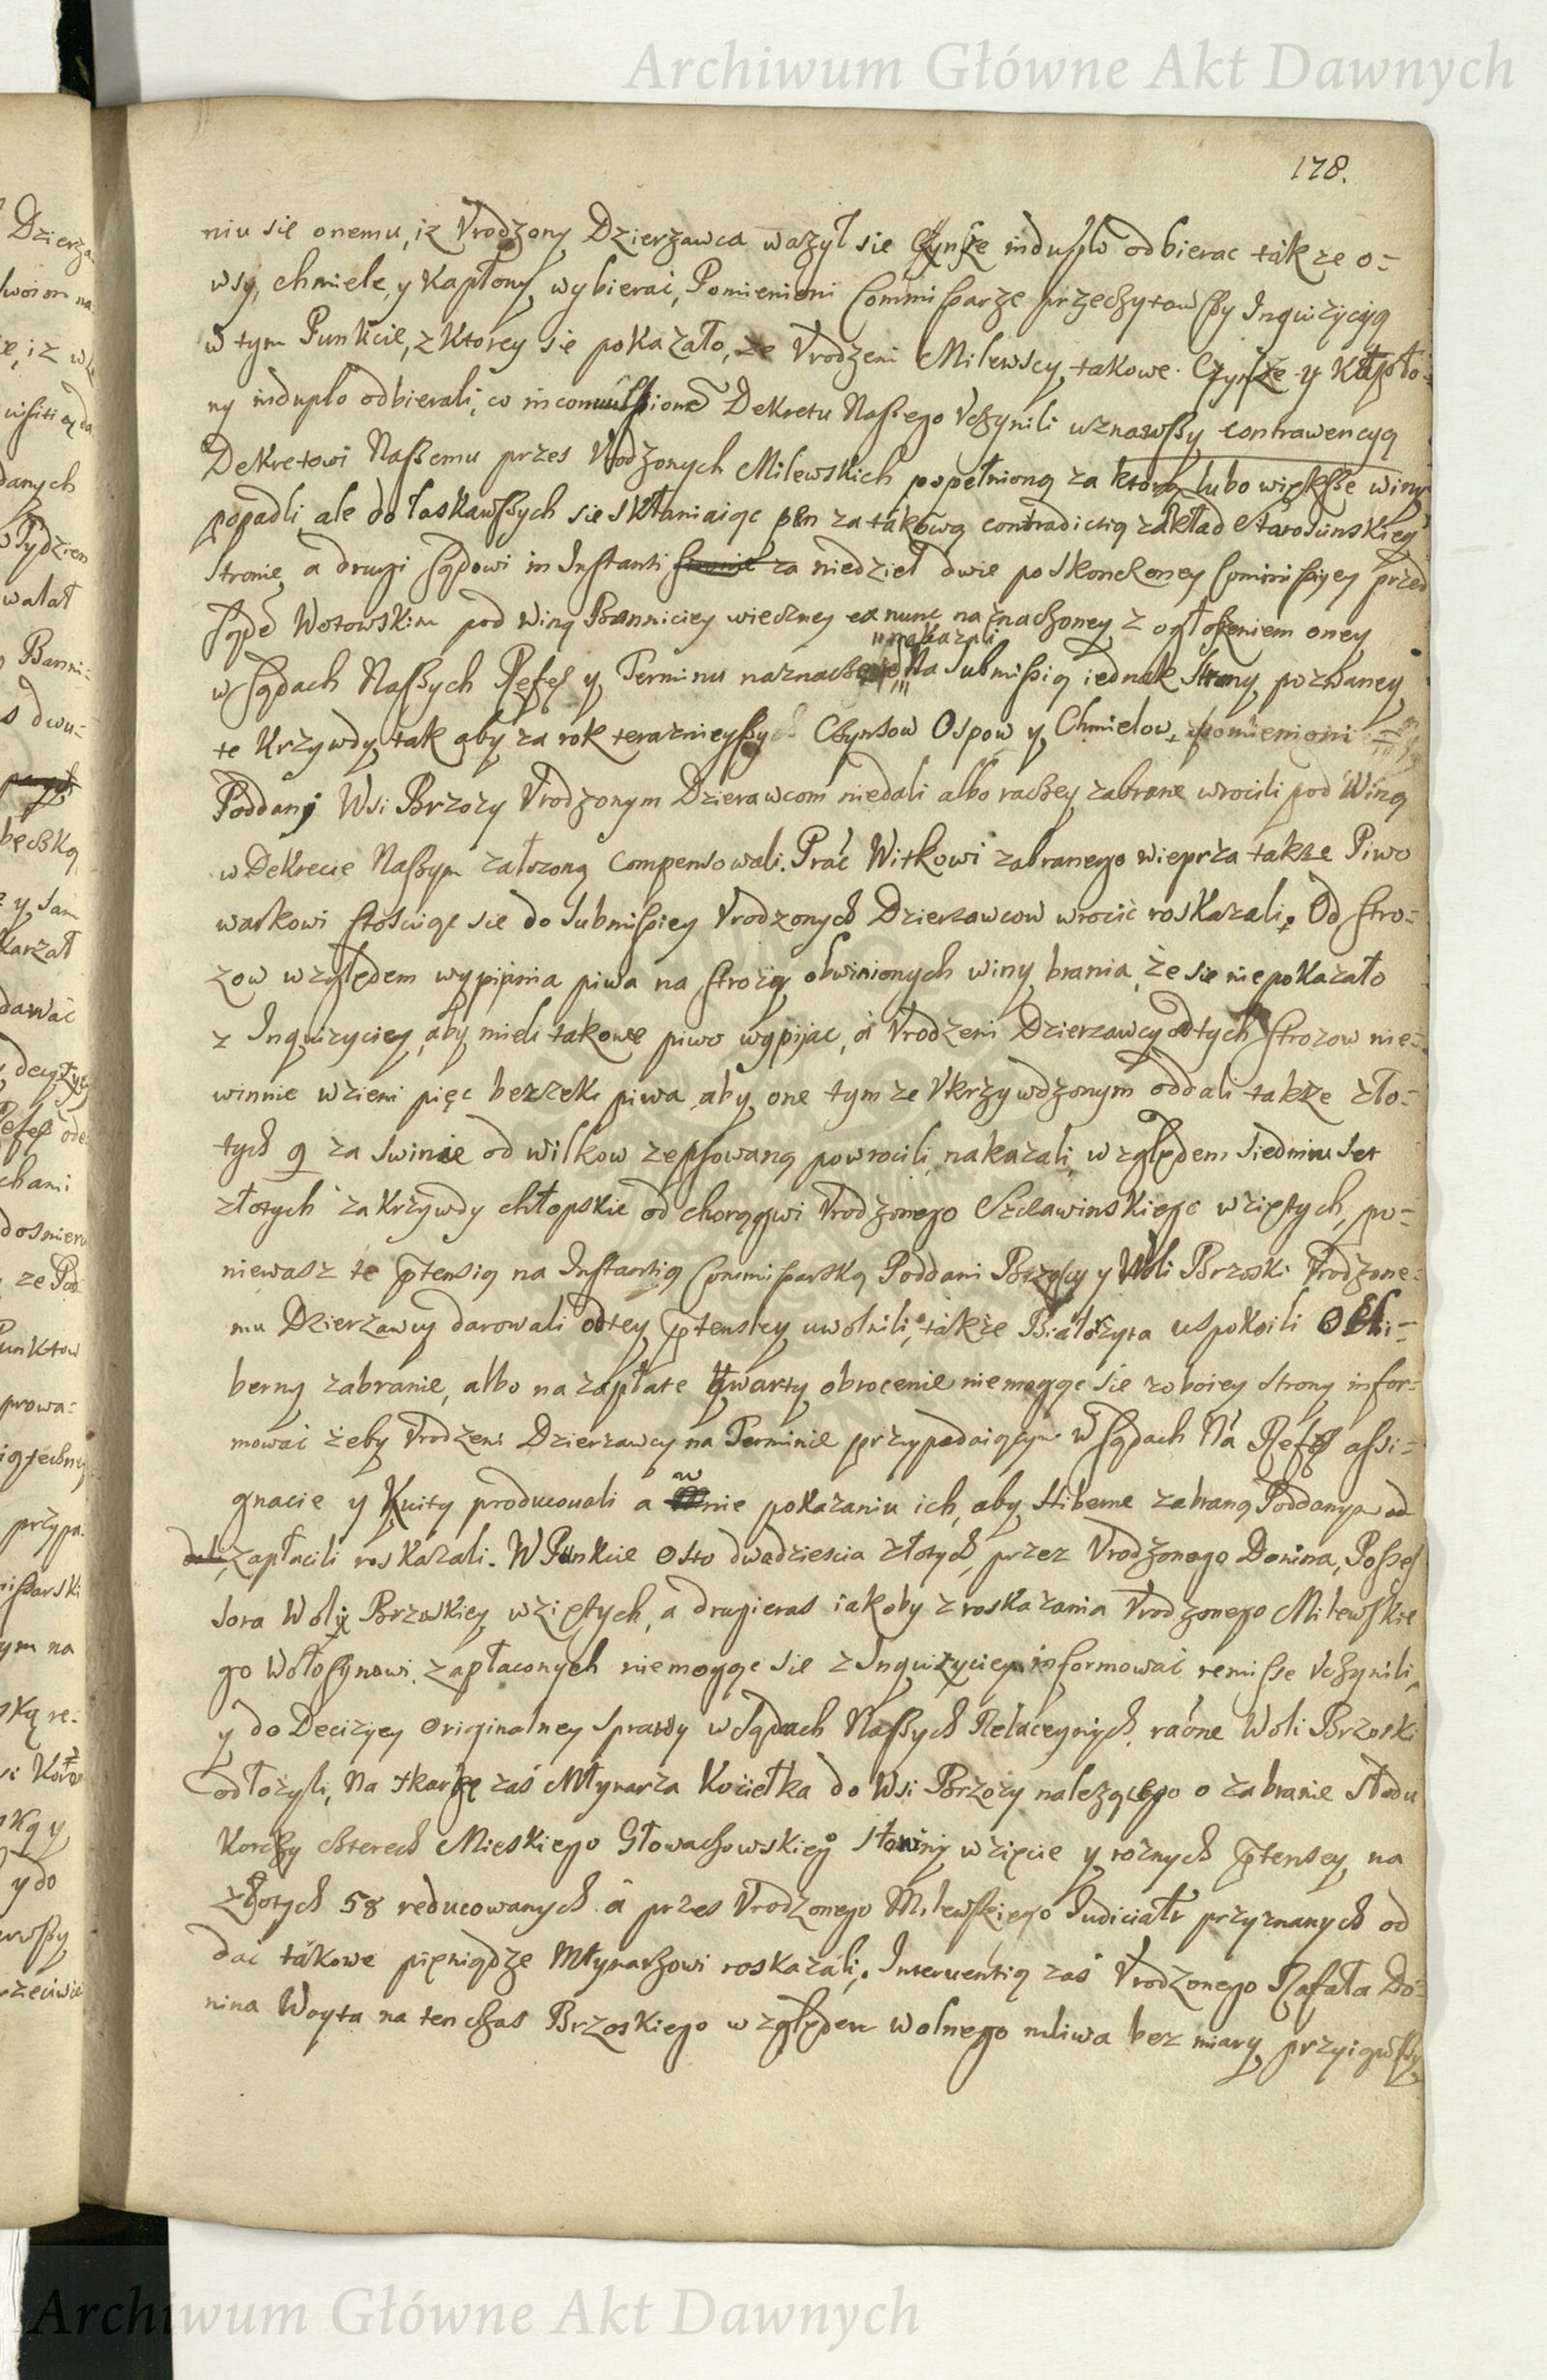 Archiwum Główne Akt Dawnych
178.
niu sie onemu, iz Vrodzony Dzierzawca wazył sie Czynsze induplo odbierac takze o=
wsy, chmiele, y Kapłony wybierać, Pomienieni Commissarze przeczytawszy Inquizycyą
w tym Punkcie, z Ktorey się pokazało, ze Vrodzeni Milewscy takowe Czynsze y Kapło=
ny induplo odbierali, co in convulsionem Dekretu Naszego Vczynili uznawszy contrawencyą
Dekretowi Naszemu przez Vrodzonych Milewskich popełnioną za ktorą lubo większe winy
popadli ale do łaskawszych sie skłaniaiąc za takową contradictią zakład Staroscinskiey
Stronie, a drugi Sądowi in Instanti za niedziel dwie po skonczoney Commissyey przed
Sądem Wotowskim pod winą Banniciey wieczney ex nunc naznaczoney z ogłoszeniem oney
"nakazali
w Sądach Naszych Refer y Terminu Na Submissią iednak Strony pozwaney
te Krzywdy tak aby za rok teraznieyszych Czynsow Ospow y Chmielow, pomienioni
Poddani Wsi Brzozy Vrodzonym Dzierawcom niedali albo raczey zabrane wrocili pod Winą
w Dekrecie Naszym załozoną compensowali. Prać Witkowi zabranego wieprza takze Piwo
warkowi stosuiąc sie do submissiey Vrodzonych Dzierzawcow wrocić roskazali. Od stro=
zow względem wypiiania piwa na strozą obwinionych winy brania, że sie niepokazało
z Inquizyciey, aby mieli takowe piwo wypijac, a Vrodzeni Dzierzawcy od tych strozow nie=
winnie wzieni pięc beczek piwa aby one tym ze Vkrzywdzonym oddali takze zło=
tych 9 za swinie od wilkow zepsowaną powrocili nakazali, względem siedmiu set
złotych za krzywdy chłopskie od chorągwi Vrodzonego Szcławinskiego wziętych, po=
niewasz te ptensią na Instantią Commissarską Poddani Brzozcy y Woli Brzoski Vrodzone=
mu Dzierzawcy darowali od tey ptensiey uwolnili, także Białozyta uspokoili O Hi=
berny zabranie, albo na zapłate kwarty obrocenie niemogąc sie z oboiey strony infor=
mować żeby Vrodzeni Dzierzawcy na Terminie przypadaiącym w Sądach Na Refer assi=
gnacie y Kwity producowali a w nie pokazaniu ich, aby Hiberne zabraną Poddanym od
dali, zapłacili roskazali. W Punkcie o sto dwadziescia złotych, przez Vrodzonego Donina, Posses
sora Woli Brzoskiey wziętych, a drugieras iakoby z roskazania Vrodzonego Milewskie
go Wołoszynowi zapłaconych niemogąc sie z Inquizyciey informować remisse Vczynili,
y do Decizyey originalney sprawy w Sądach Naszych Relacyinych, raone Woli Brzoski
odłozyli, Na skargę zaś Młynarza Kociełka do Wsi Brzozy nalezącego o zabranie słodu
Korczy czterech Mieskiego Głowaczowskieg° słoniny wzięcie y roznych ptensey na
złotych 58 reducowanych a przes Vrodzonego Milewskiego Judicialr przyznanych od
dać takowe pieniądze Młynarzowi roskazali. Interuentią zaś Vrodzonego Rafała Do=
nina Woyta na ten czas Brzoskiego względem wolnego mliwa bez miary przyiąwszy
Archiwum Główne Akt Dawnych